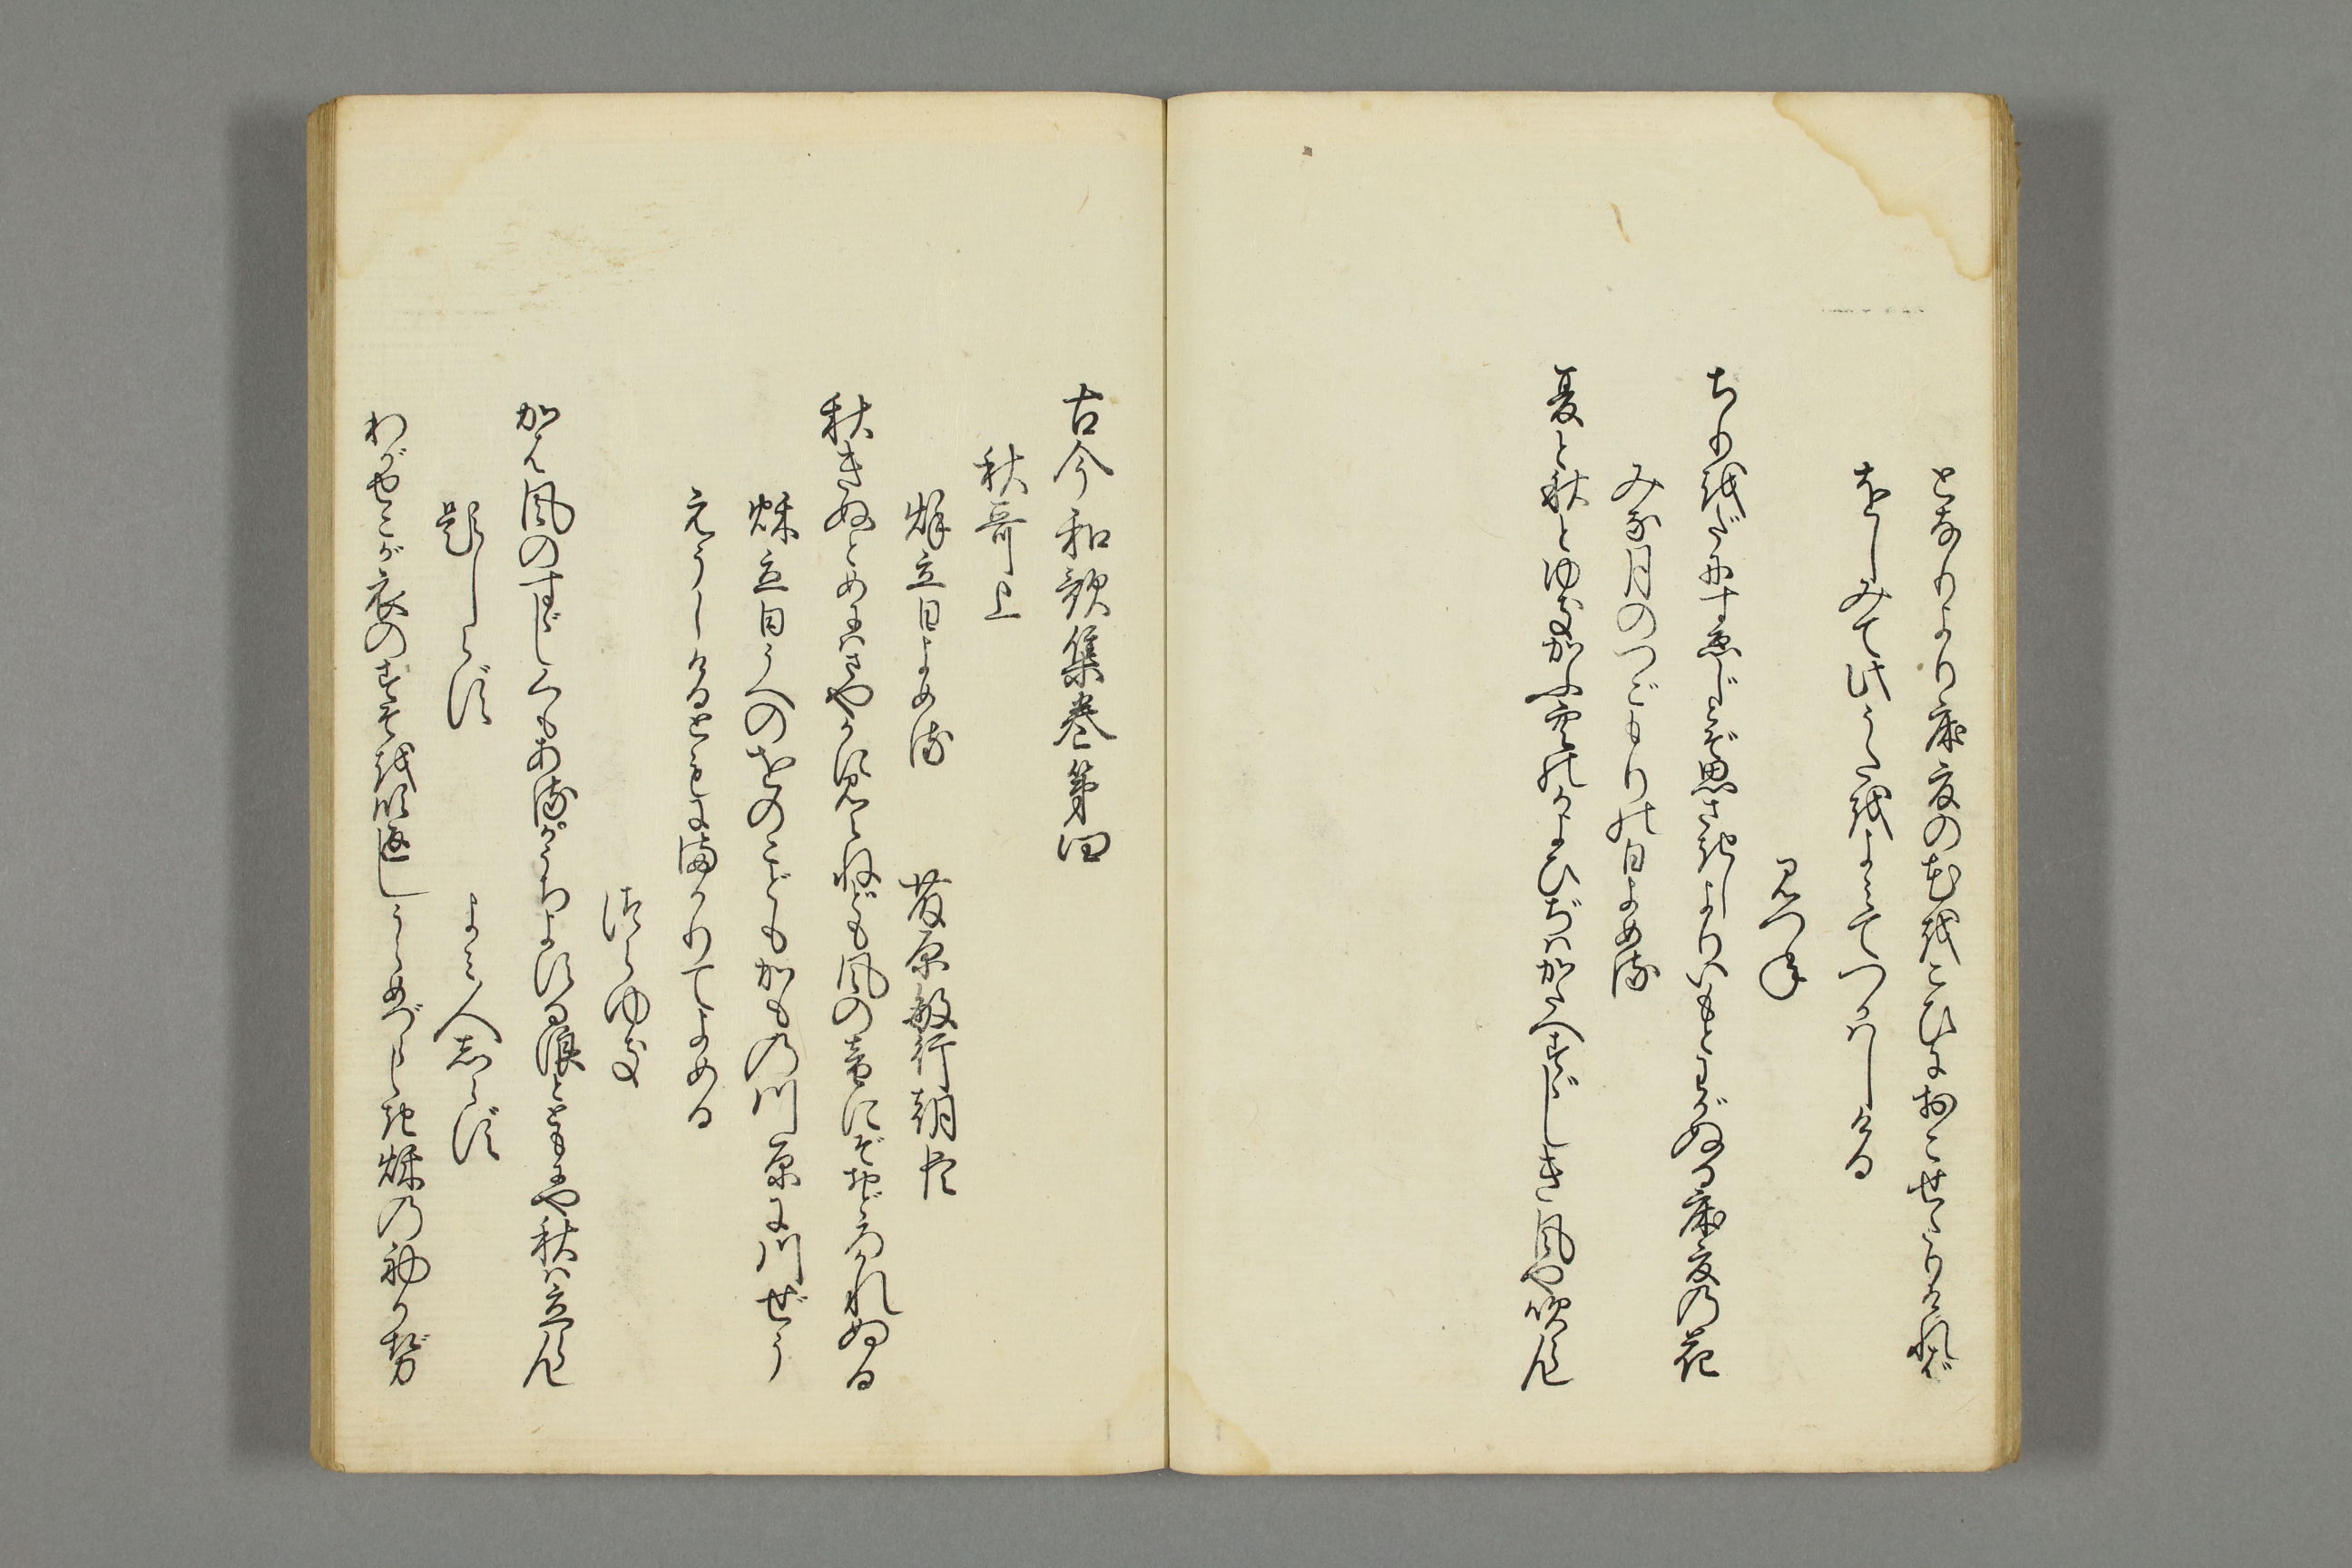 となりより床夏の花越こひにおこせたりければ
をしみて此うた越よみてつかはしける
みつね
ちり越だにすゑじとぞ思さきしよりいもとわがぬる床夏乃花
みな月のつごもりの日よめる
夏と秋とゆきかふ空のかよひぢはかたへすゞしき風や吹らん
古今和歌集巻第四
秋哥上
秋立日よめる　藤原敏行朝臣
秋きぬとめにはさやかに見えねども風の音にぞおどろかれぬる
秋立日うへのをのこどもかもの川原に川ぜう
えうしけるともにまかりてよめる
つらゆき
かは風のすゞしくもあるかうちよする浪とともにや秋は立らん
題しらず　よみ人しらず
わがせこが衣のすそ越吹返しうらめづらしき秋乃初かぜ